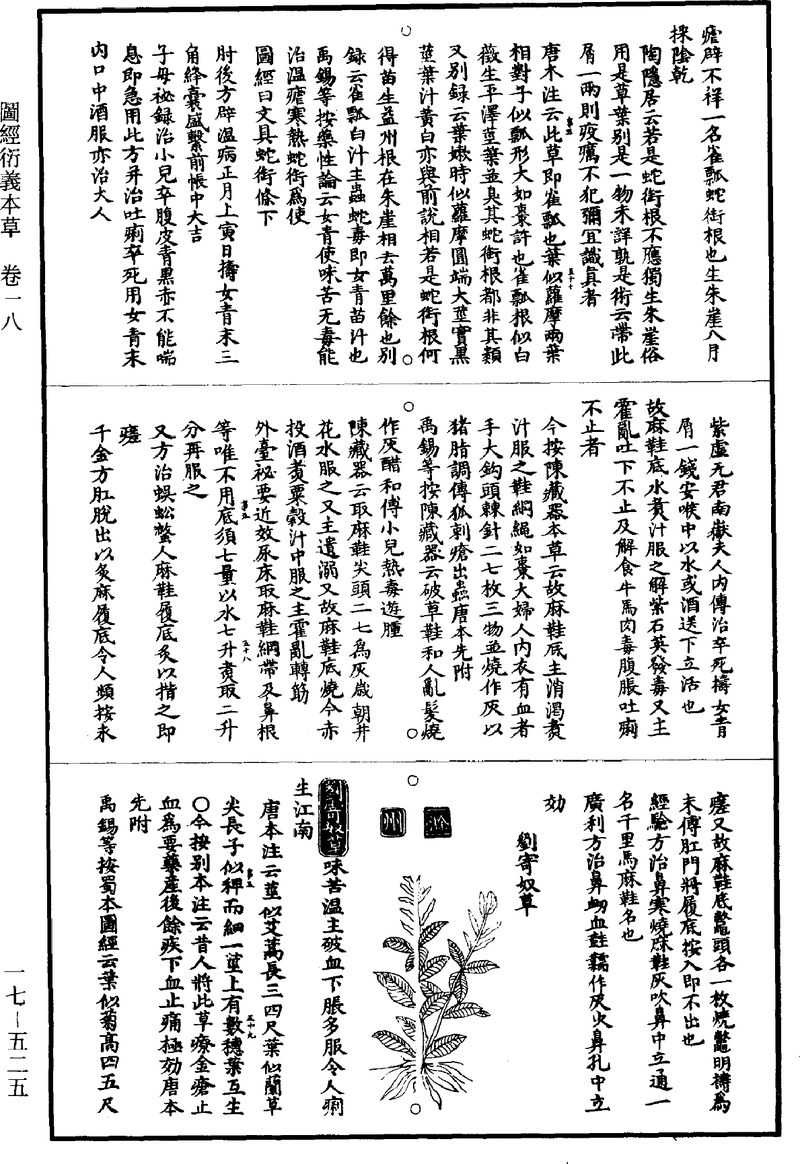 瘧辟不祥一名雀瓢蛇銜根也生朱崖八月
採陰乾
陶隱居云若是蛇銜根不應獨生朱崖俗
用是草葉別是一物未詳孰是術云帶此
屑一兩則疫癘不犯彌宜識真者
唐本注云此草即雀瓢也葉似蘿摩兩葉
相對子似瓢形大如棗許也雀瓢根似白
薇生平澤莖葉並臭其蛇銜根都非其類
又別録云葉嫩時似蘿摩圓端大莖實黑
莖葉汁黃白亦與前說相若是蛇銜根何
得苗生益州根在朱崖相去萬里餘也別
録云雀瓢白汁主蟲蛇毒即女青苗汁也
禹錫等按藥性論云女青使味苦无毒能
治溫瘧寒熱蛇銜爲使
圖經曰文具蛇銜條下
肘後方辟溫病正月上寅日擣女青末三
角絳囊盛繫前帳中大吉
子母祕録治小兒卒腹皮青黑赤不能喘
息即急用此方并治吐痢卒死用女青末
內口中酒服亦治大人
紫虛元君南嶽夫人內傳治卒死擣女青
屑一錢安喉中以水或酒送下立活也
故麻鞋底水煑汁服之解紫石英發毒又主
霍亂吐下不止及解食牛馬肉毒腹脹吐痢
不止者
今按陳藏器本草云故麻鞋底主消渴煑
汁服之鞋綱繩如棗大婦人內衣有血者
手大鈎頭棘針二七枚三物並燒作灰以
猪脂調傅狐刺瘡出蟲唐本先附
禹錫等按陳藏器云破草鞋和人亂髮燒
作灰醋和傅小兒熱毒遊腫
陳藏器云取麻鞋尖頭二七爲灰歲朝井
花水服之又主遺溺又故麻鞋底燒令赤
投酒煑粟穀汁中服之主霍亂轉筋
外臺祕要近效尿床取麻鞋綱帶及鼻根
等唯不用底須七量以水七升煑取二升
分再服之
又方治蜈蚣螫人麻鞋履底炙以揩之即
瘥
千金方肛脫出以炙麻履底令人頻按永
瘥又故麻鞋底鼈頭各一枚燒鼈明擣爲
末傅肛門將履底按入即不出也
經驗方治鼻寒燒麻鞋灰吹鼻中立通一
名千里馬麻鞋名也
廣利方治鼻衂血鞋䩺作灰吹鼻孔中立
効
劉寄奴草
滁
州
劉寄奴草味苦溫主破血下脹多服令人痢
生江南
唐本注云莖似艾蒿長三四尺葉似蘭草
尖長子似稗而細一莖上有數穗葉互生
○今按別本注云昔人將此草療金瘡止
血爲要藥産後餘疾下血止痛極効唐本
先附
禹錫等按蜀本圖經云葉似菊高四五尺
圖經衍義本草 卷一八
一七－五二五